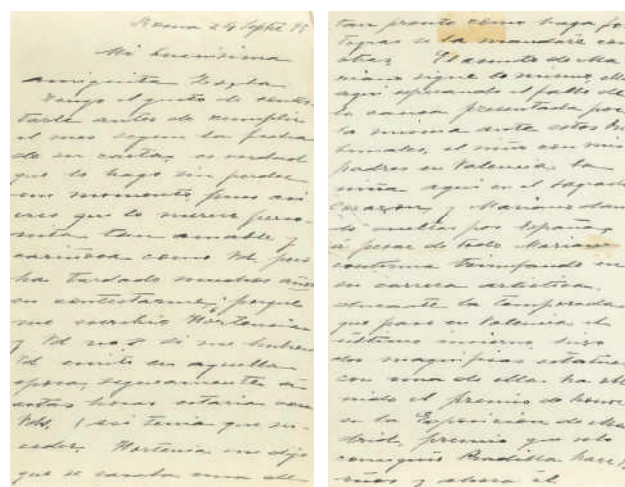 Roma 24 Septe 95
Mi buenisima
amiguita
Tengo el gusto de contes-
tarle antes de cumplir
el mes segun la fecha
de su carta, es verdad
que lo hago sin perder
un momento pues asi
creo que lo merece perso-
nita tan amable y
cariñosa como Vd, pero
ha tardado muchos años
en contestarme; porque
me escribió Hortensia
y Vd no? si me hubiera
Vd escrito en aquella
epoca, seguramente a
estas horas estaria con
Vds. ¡ asi tenia que su-
ceder. Hortensia me dijo
que se casaba una de
tan pronto como haga fo-
tografias se la mandaré con
otras. El asunto de Ma
riano sigue lo mismo,
aqui esperando el fallo de
la causa presentada por
la misma ante estos tri
bunales, el niño con mis
padres en Valencia, la
niña aqui en el Sagrado
Corazon, y Mariano dan
do vueltas por España,
á pesar de todo Mariano
continua triunfando en
su carrera artistica.
durante la temporada
que pasó en Valencia el
último invierno, hizo
dos magnificas estatuas
con una de ellas ha obte
nido el premio de honor
en la Exposicion de Ma
drid, premio que solo
consiguió Pradilla hace
años y ahora él